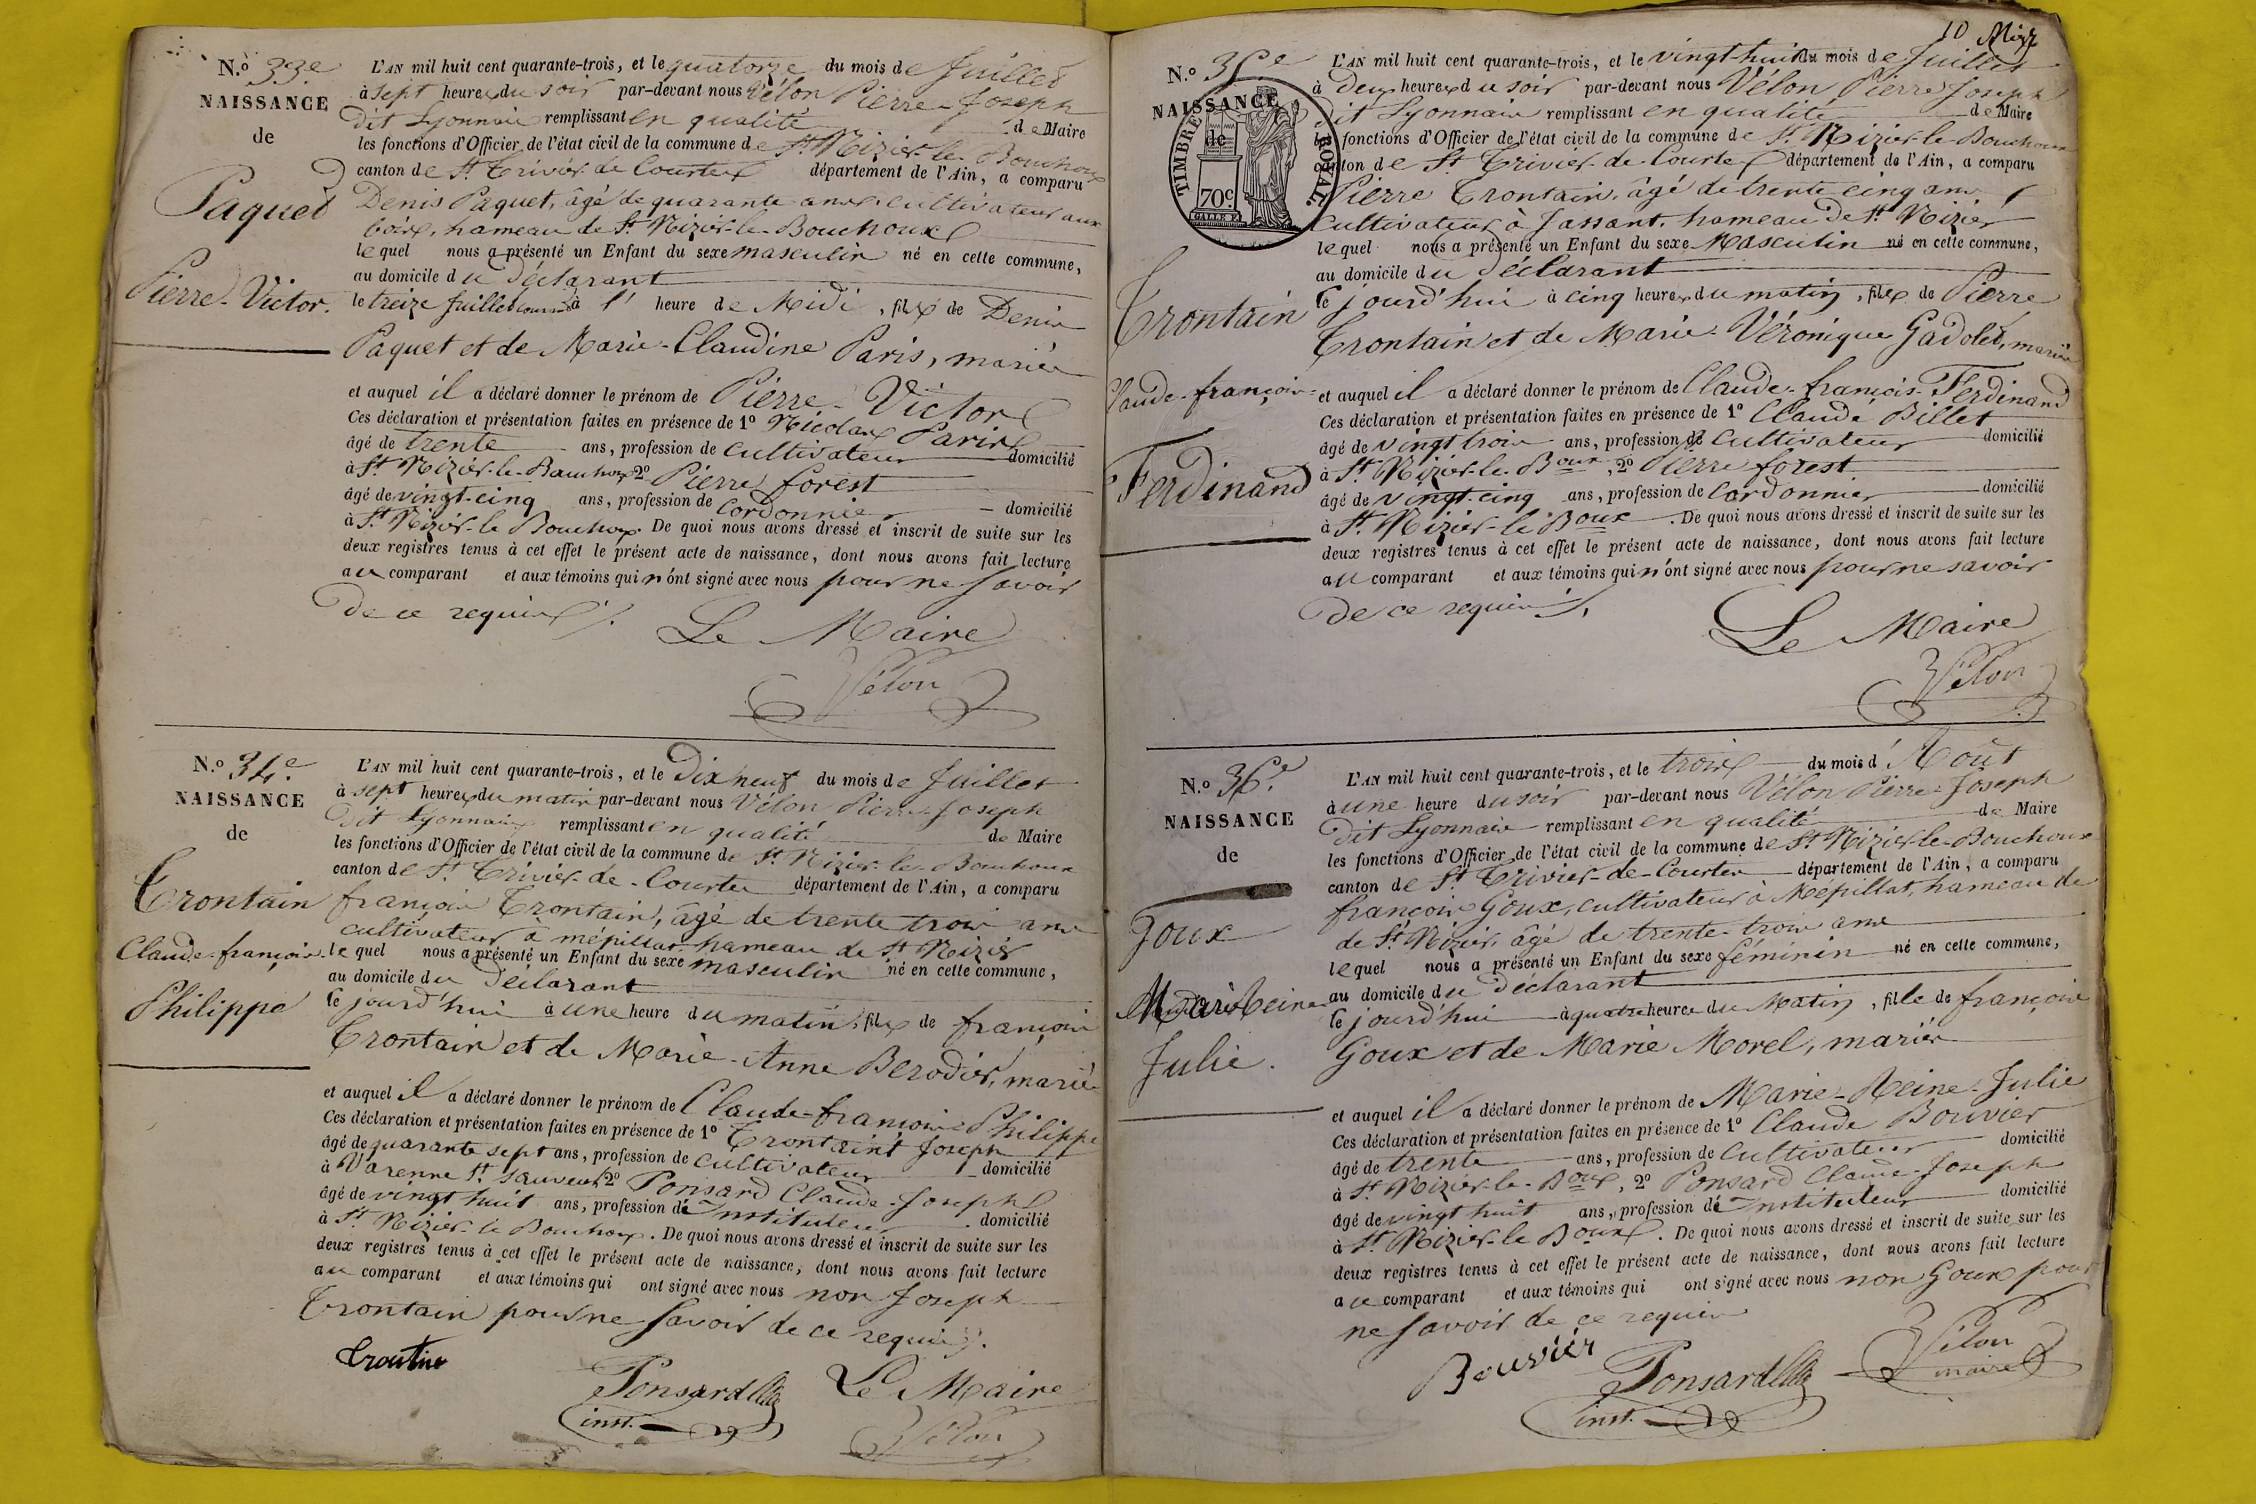 N.o 33.e
NAISSANCE
de
Paquet
Pierre-Victor.
L'AN mil huit cent quarante-trois, et le quatorze du mois de Juillet
à sept heures du soir par-devant nous Vélon Pierre-Joseph
dit Lyonnais remplissant en qualité de Maire
les fonctions d'Officier de l'état civil de la commune de St Nizier-le-Bouchoux
canton de St Trivier de Courtes département de l'Ain, a comparu
Denis Paquet, âgé de quarante ans, cultivateur aux
bois, hameau de St Nizier-le-Bouchoux
lequel nous a présenté un Enfant du sexe masculin né en cette commune,
au domicile du déclarant
le treize Juillet courant à l' heure de Midi, fils de Denis
Paquet et de Marie-Claudine Paris, mariés
et auquel il a déclaré donner le prénom de Pierre-Victor
Ces déclaration et présentation faites en présence de 1o Nicolas Paris
âgé de trente ans, profession de cultivateur domicilié
à St Nizier-le-Bouchoux 2o Pierre forest
âgé de vingt-cinq ans, profession de Cordonnier domicilié
à St Nizier-le Bouchoux. De quoi nous avons dressé et inscrit de suite sur les
deux registres tenus à cet effet le présent acte de naissance, dont nous avons fait lecture
au comparant et aux témoins qui n'ont signé avec nous pour ne savoir
de ce requis
Le Maire
Vélon
N.o 34.e
NAISSANCE
de
Trontain
Claude-françois-
Philippe
L'AN mil huit cent quarante-trois, et le Dix neuf du mois de Juillet
à sept heures du matin par-devant nous Vélon Pierre-Joseph
dit Lyonnais remplissant en qualité de Maire
les fonctions d'Officier de l'état civil de la commune de St Nizier-le-Bouchoux
canton de St Trivier-de-Courtes département de l'Ain, a comparu
françois Trontain, âgé de trente trois ans
cultivateur à mépillat hameau de St Nizier
lequel nous a présenté un Enfant du sexe masculin né en cette commune,
au domicile du Déclarant
le jourd'hui à une heure du matin, fils de françois
Trontain et de Marie-Anne Berodier, mariés
et auquel il a déclaré donner le prénom de Claude-françois Philippe
Ces déclaration et présentation faites en présence de 1o Trontaint Joseph
âgé de quarante sept ans, profession de cultivateur domicilié
à Varenne St Sauveur 2o Ponsard Claude-Joseph
âgé de vingt huit ans, profession de Instituteur domicilié
à St Nizier-le Bouchoux. De quoi nous avons dressé et inscrit de suite sur les
deux registres tenus à cet effet le présent acte de naissance, dont nous avons fait lecture
au comparant et aux témoins qui ont signé avec nous non Joseph
Trontain pour ne Savoir de ce requis.
Ponsard
Le Maire
inst.
Vélon
10
N.o 35e
NAISSANCE
de
TIMBRE ROYAL
70c
Trontain
Claude-françois-
Ferdinand
L'AN mil huit cent quarante-trois, et le vingt-huit du mois de Juillet
à deux heures du soir par-devant nous Vélon Pierre Joseph
dit Lyonnais remplissant en qualité de Maire
les fonctions d'Officier de l'état civil de la commune de St Nizier-le-Bouchoux
canton de St Trivier-de-Courtes département de l'Ain, a comparu
Pierre Trontain, âgé de trente cinq ans
Cultivateur à Jassant, hameau de St Nizier
lequel nous a présenté un Enfant du sexe Masculin né en cette commune,
au domicile du Déclarant
le jourd'hui à cinq heures du matin, fils de Pierre
Trontain et de Marie-Véronique Gadolet, mariés
et auquel il a déclaré donner le prénom de Claude-françois-Ferdinand
Ces déclaration et présentation faites en présence de 1o Claude Billet
âgé de vingt trois ans, profession de cultivateur domicilié
à St Nizier-le-Boux, 2o Pierre forest
âgé de vingt-cinq ans, profession de Cordonnier domicilié
à St Nizier-le Boux. De quoi nous avons dressé et inscrit de suite sur les
deux registres tenus à cet effet le présent acte de naissance, dont nous avons fait lecture
au comparant et aux témoins qui n'ont signé avec nous pour ne savoir
de ce requis
Le Maire
Vélon
N.o 36.e
NAISSANCE
de
Goux
Marie Reine
Julie.
L'AN mil huit cent quarante-trois, et le trois du mois d'Août
à une heure du soir par-devant nous Vélon Pierre-Joseph
dit Lyonnais remplissant en qualité de Maire
les fonctions d'Officier de l'état civil de la commune de St Nizier-le-Bouchoux
canton de St Trivier-de-Courtes département de l'Ain, a comparu
françois Goux, cultivateur à Mépillat, hameau de
de St Nizier, âgé de trente-trois ans
lequel nous a présenté un Enfant du sexe féminin né en cette commune,
au domicile du Déclarant
le jourd'hui à quatre heures du Matin, fille de françois
Goux et de Marie Morel, mariés
et auquel il a déclaré donner le prénom de Marie-Reine-Julie
Ces déclaration et présentation faites en présence de 1o Claude Bouvier
âgé de trente ans, profession de Cultivateur domicilié
à St Nizier-le-Boux, 2o Ponsard Claude-Joseph
âgé de vingt huit ans, profession de Instituteur domicilié
à St Nizier-le Boux. De quoi nous avons dressé et inscrit de suite sur les
deux registres tenus à cet effet le présent acte de naissance, dont nous avons fait lecture
au comparant et aux témoins qui ont signé avec nous non Goux pour
ne savoir de ce requis
Bouvier
Ponsard
inst.
Vélon
maire